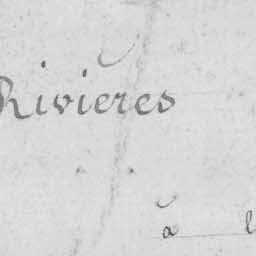 Rivieres
à l